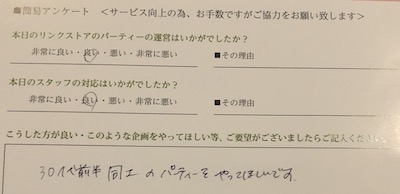 簡易アンケート <サービス向上の為、お手数ですがご協力をお願い致します>
本日のリンクストアのパーティーの運営はいかがでしたか?
非常に良い・良い・悪い・非常に悪い ■その理由
本日のスタッフの対応はいかがでしたか?
非常に良い・良い・悪い・非常に悪い ■その理由
こうした方が良い・このような企画をやってほしい等、ご要望がございましたらご記入ください
30代前半同士のパーティーをやってほしいです。